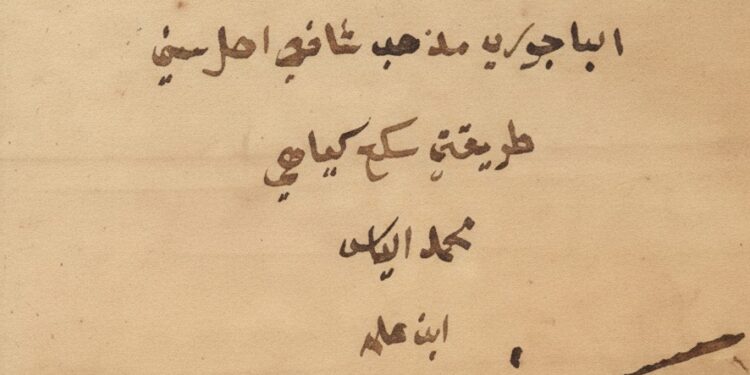 الباجوري مذهب شافعي اهل سني
طريقتي سكع كياهي
محمد الياس
ابن علي